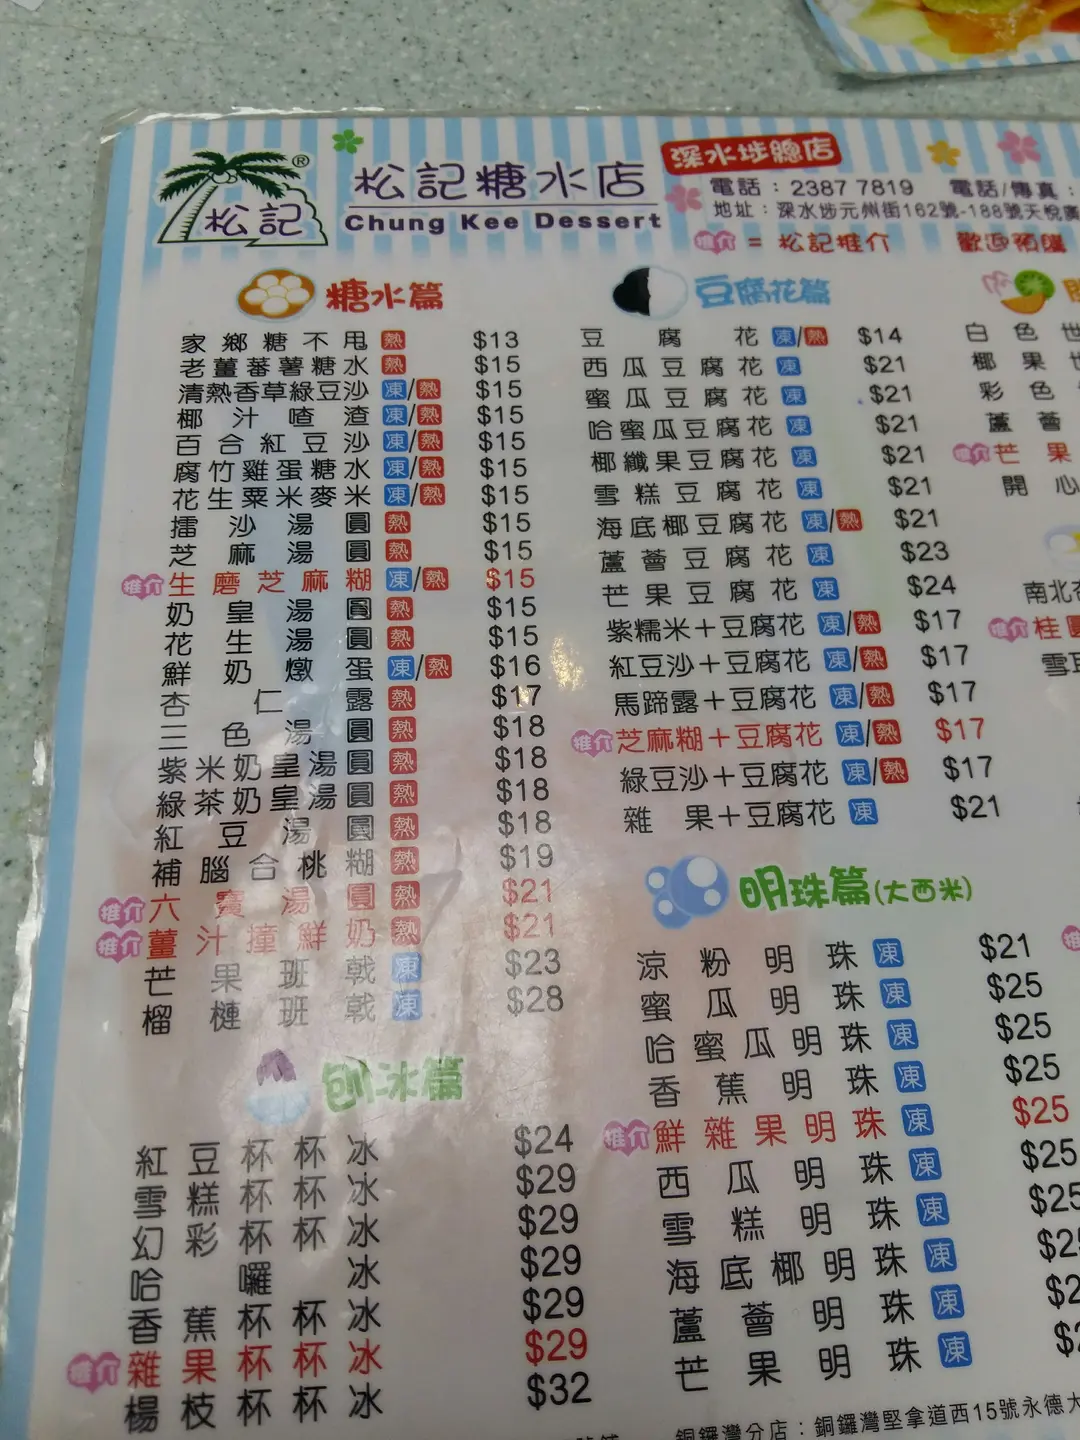 松記®
松記糖水店
Chung Kee Dessert
深水埗總店
電話：2387 7819 電話/傳真：
地址：深水埗元州街162號-188號天悅廣
推介 = 松記推介 歡迎預購
糖水篇
家鄉糖不甩 熱 $13
老薑蕃薯糖水 熱 $15
清熱香草綠豆沙 凍/熱 $15
椰汁喳渣 凍/熱 $15
百合紅豆沙 凍/熱 $15
腐竹雞蛋糖水 凍/熱 $15
花生粟米麥米 凍/熱 $15
擂沙湯圓 熱 $15
芝麻湯圓 熱 $15
推介 生磨芝麻糊 凍/熱 $15
奶皇湯圓 熱 $15
花生湯圓 熱 $15
鮮奶燉蛋 凍/熱 $16
杏仁露 熱 $17
三色湯圓 熱 $18
紫米奶皇湯圓 熱 $18
綠茶奶皇湯圓 熱 $18
紅豆湯圓 熱 $18
補腦合桃糊 熱 $19
推介 六寶湯圓 熱 $21
推介 薑汁撞鮮奶 熱 $21
芒果班戟 凍 $23
榴槤班戟 凍 $28
刨冰篇
紅豆杯杯冰 $24
雪糕杯杯冰 $29
幻彩杯杯冰 $29
哈囉冰 $29
香蕉杯杯冰 $29
推介 雜果杯杯冰 $29
楊枝杯杯冰 $32
豆腐花篇
豆腐花 凍/熱 $14
西瓜豆腐花 凍 $21
蜜瓜豆腐花 凍 $21
哈蜜瓜豆腐花 凍 $21
椰纖果豆腐花 凍 $21
雪糕豆腐花 凍 $21
海底椰豆腐花 凍/熱 $21
蘆薈豆腐花 凍 $23
芒果豆腐花 凍 $24
紫糯米＋豆腐花 凍/熱 $17
紅豆沙＋豆腐花 凍/熱 $17
馬蹄露＋豆腐花 凍/熱 $17
推介 芝麻糊＋豆腐花 凍/熱 $17
綠豆沙＋豆腐花 凍/熱 $17
雜果＋豆腐花 凍 $21
明珠篇(大西米)
涼粉明珠 凍 $21
蜜瓜明珠 凍 $25
哈蜜瓜明珠 凍 $25
香蕉明珠 凍 $25
推介 鮮雜果明珠 凍 $25
西瓜明珠 凍 $25
雪糕明珠 凍 $25
海底椰明珠 凍 $2
蘆薈明珠 凍 $2
芒果明珠 凍 $2
白色世
椰果世
彩色
蘆薈
推介 芒果
開心
南北杏
推介 桂圓
雪耳
銅鑼灣分店：銅鑼灣堅拿道西15號永德大